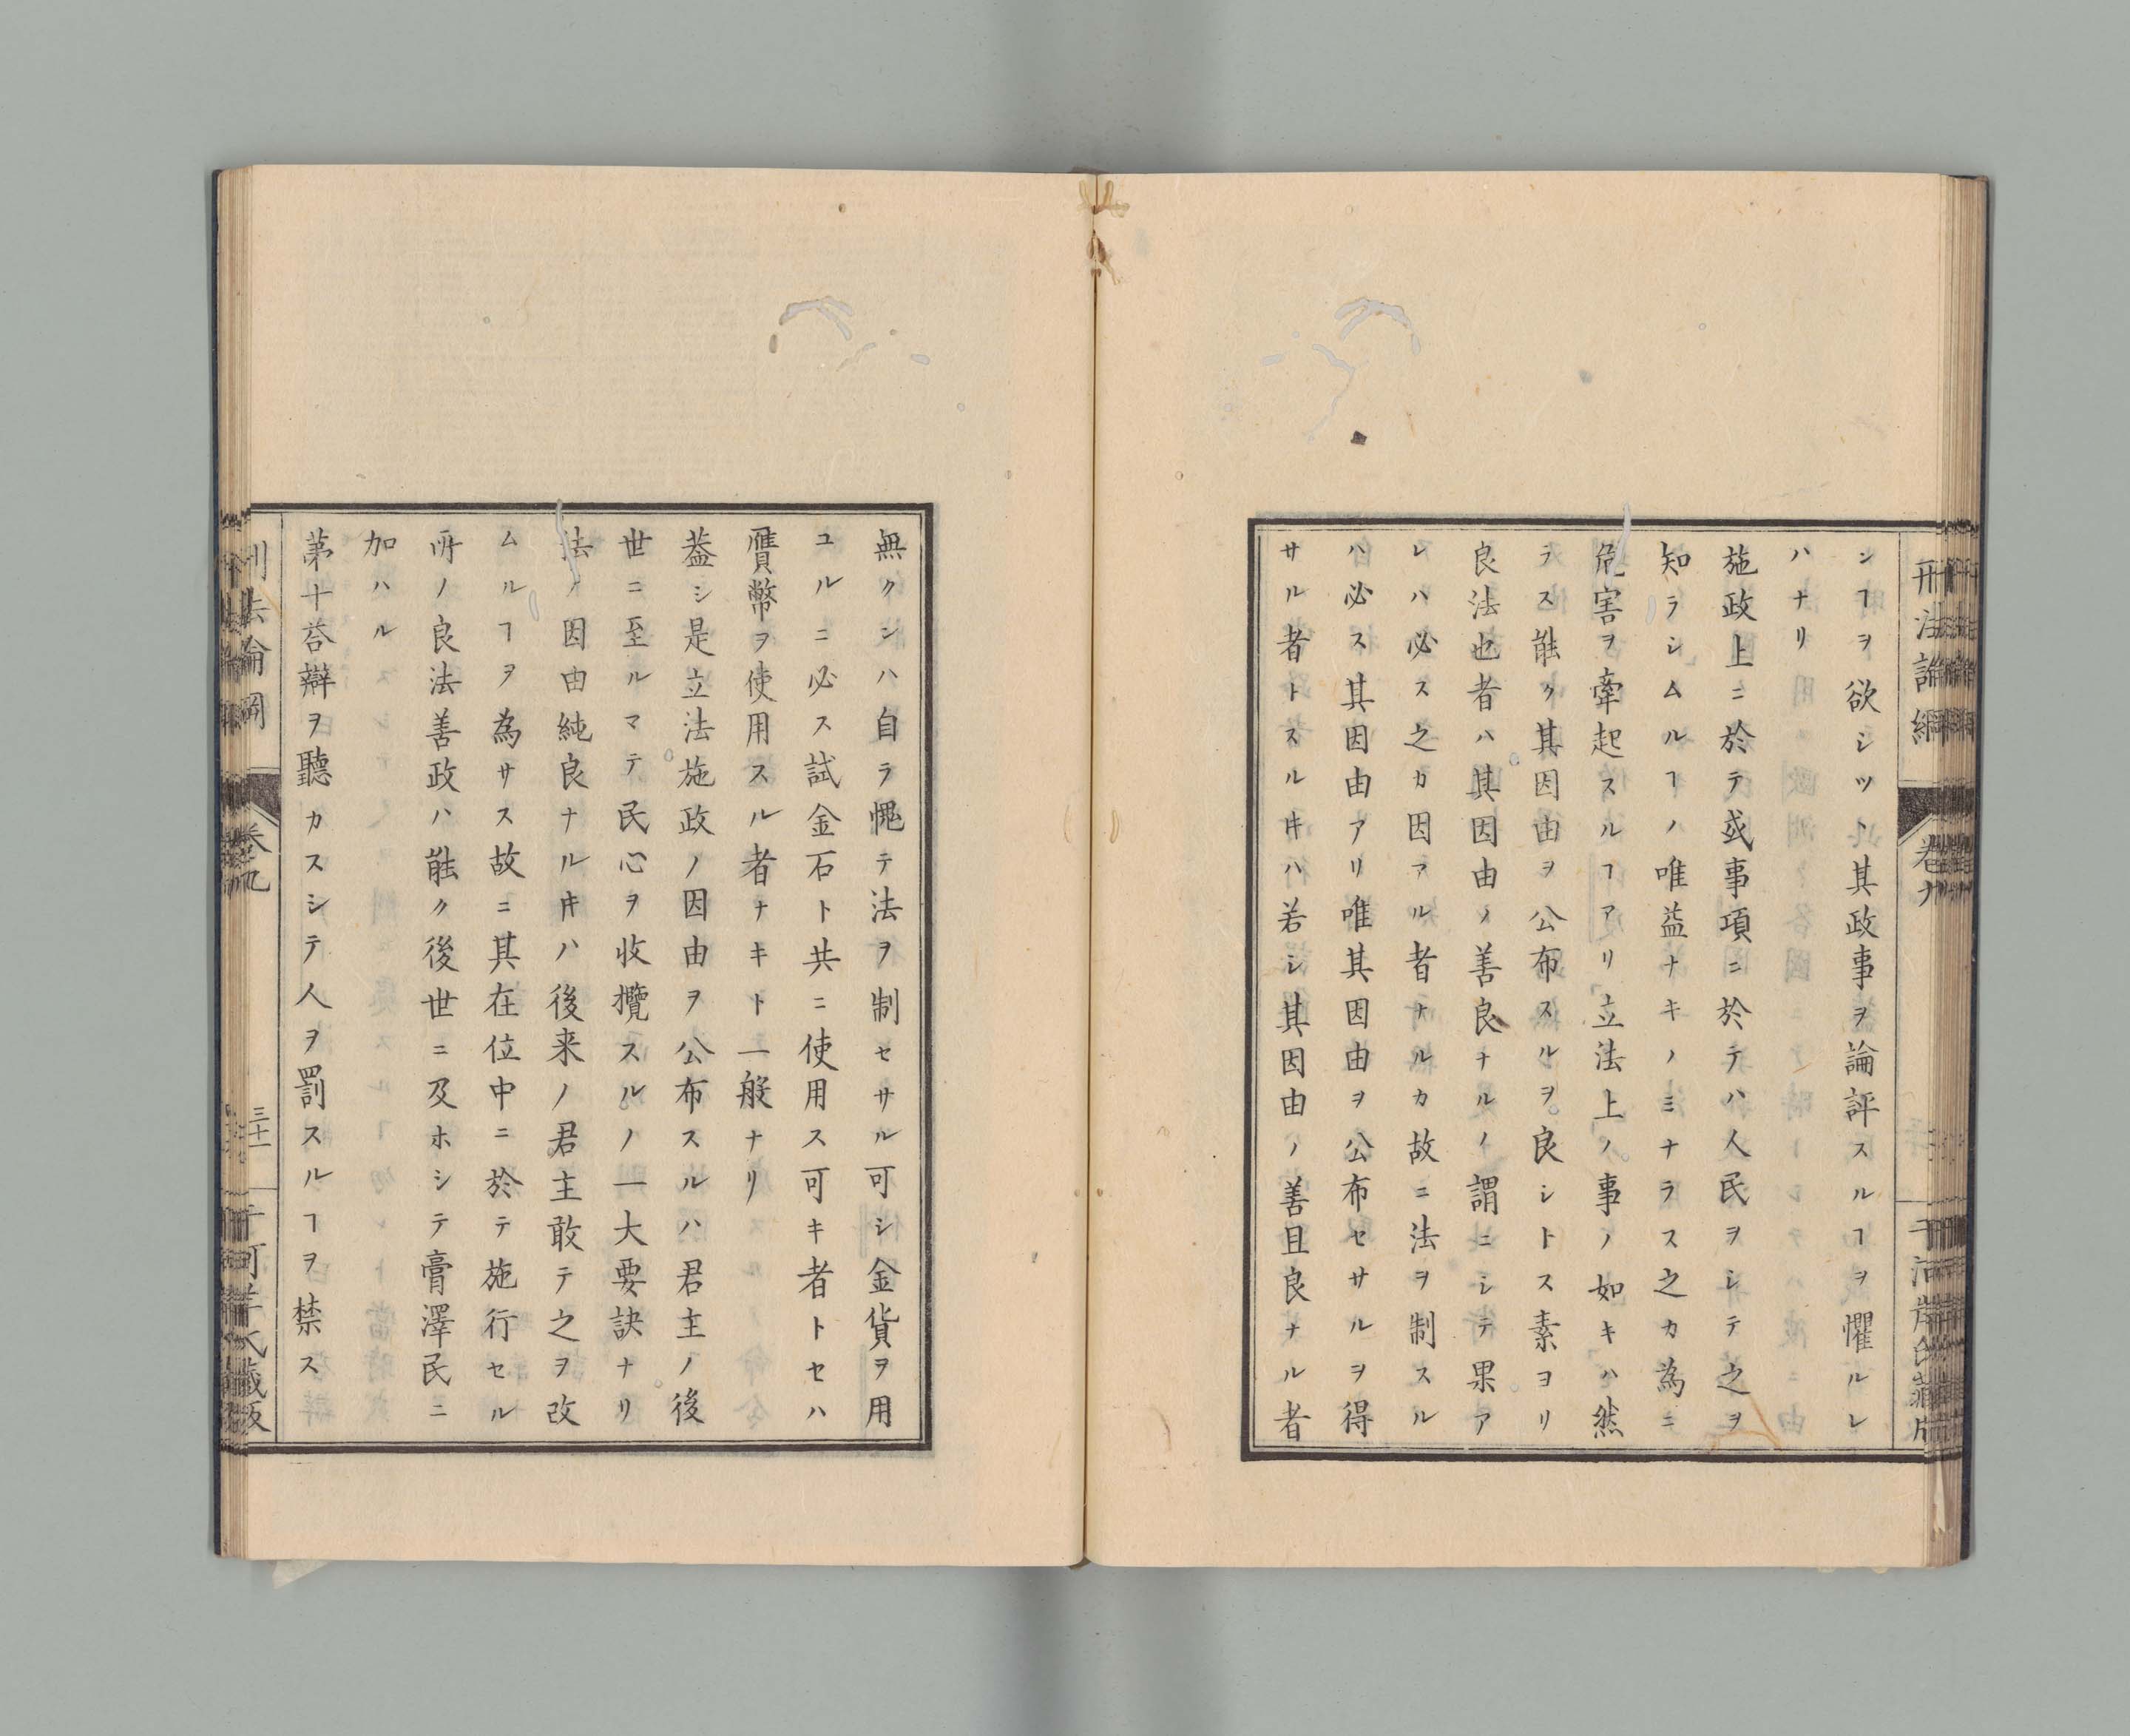 刑法論綱
卷九
ンヿヲ欲シツヽ其政事ヲ論評スルヿヲ懼ルレ
ハナリ
施政上ニ於テ或事項ニ於テハ人民ヲシテ之ヲ
知ラシムルヿノ唯益ナキノミナラス之カ為ニ
危害ヲ牽起スルヿアリ立法上ノ事ノ如キハ然
ラス能ク其因由ヲ公布スルヲ良シトス素ヨリ
良法也者ハ其因由ノ善良ナルノ謂ニシテ果ア
レハ必ス之カ因アル者ナルカ故ニ法ヲ制スル
ハ必ス其因由アリ唯其因由ヲ公布セサルヲ得
サル者トスルキハ若シ其因由ノ善且良ナル者
無クシハ自ラ愧テ法ヲ制セサル可シ金貨ヲ用
ユルニ必ス試金石ト共ニ使用ス可キ者トセハ
贋幣ヲ使用スル者ナキト一般ナリ
葢シ是立法施政ノ因由ヲ公布スルハ君主ノ後
世ニ至ルマテ民心ヲ收攬スルノ一大要訣ナリ
法ノ因由純良ナルキハ後来ノ君主敢テ之ヲ改
ムルヿヲ為サス故ニ其在位中ニ於テ施行セル
所ノ良法善政ハ能ク後世ニ及ホシテ膏澤民ニ
加ハル
第十荅辯ヲ聽カスシテ人ヲ罰スルヿヲ禁ス
刑法論綱
卷九
三十一